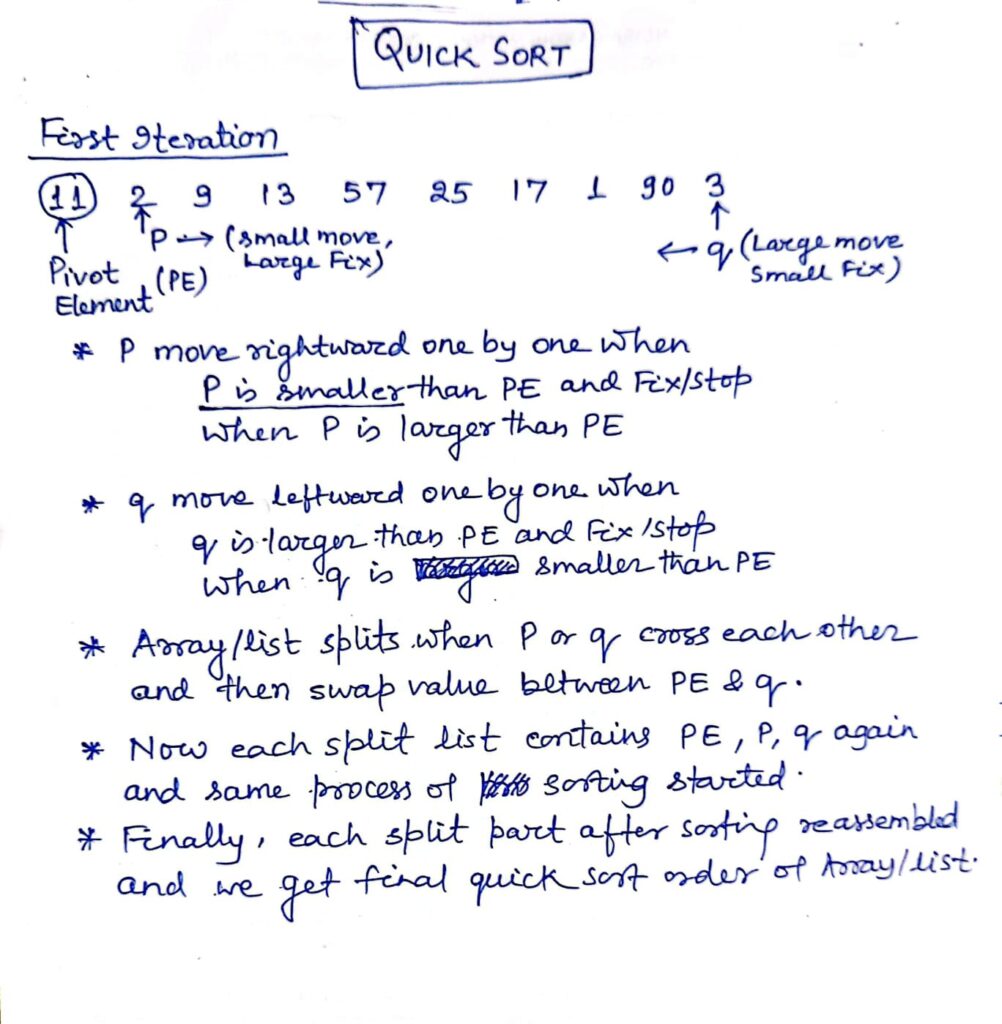 QUICK SORT
First Iteration
11 2 9 13 57 25 17 1 90 3
P → (small move, Large Fix)
← q (Large move Small Fix)
Pivot Element (PE)
* P move rightward one by one when
P is smaller than PE and Fix/Stop
when P is larger than PE
* q move leftward one by one when
q is larger than PE and Fix/Stop
when q is smaller than PE
* Array/list splits when P or q cross each other
and then swap value between PE & q.
* Now each split list contains PE, P, q again
and same process of sorting started.
* Finally, each split part after sorting reassembled
and we get final quick sort order of Array/list.